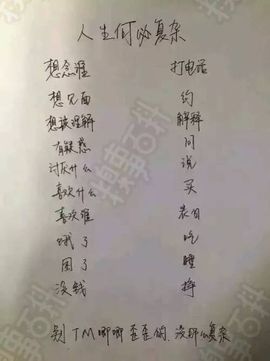 人生何必复杂
想念谁 打电话
想见面 约
想被理解 解释
有疑惑 问
讨厌什么 说
喜欢什么 买
喜欢谁 表白
饿了 吃
困了 睡
没钱 挣
别TM唧唧歪歪的,没那么复杂
糗事百科
糗事百科